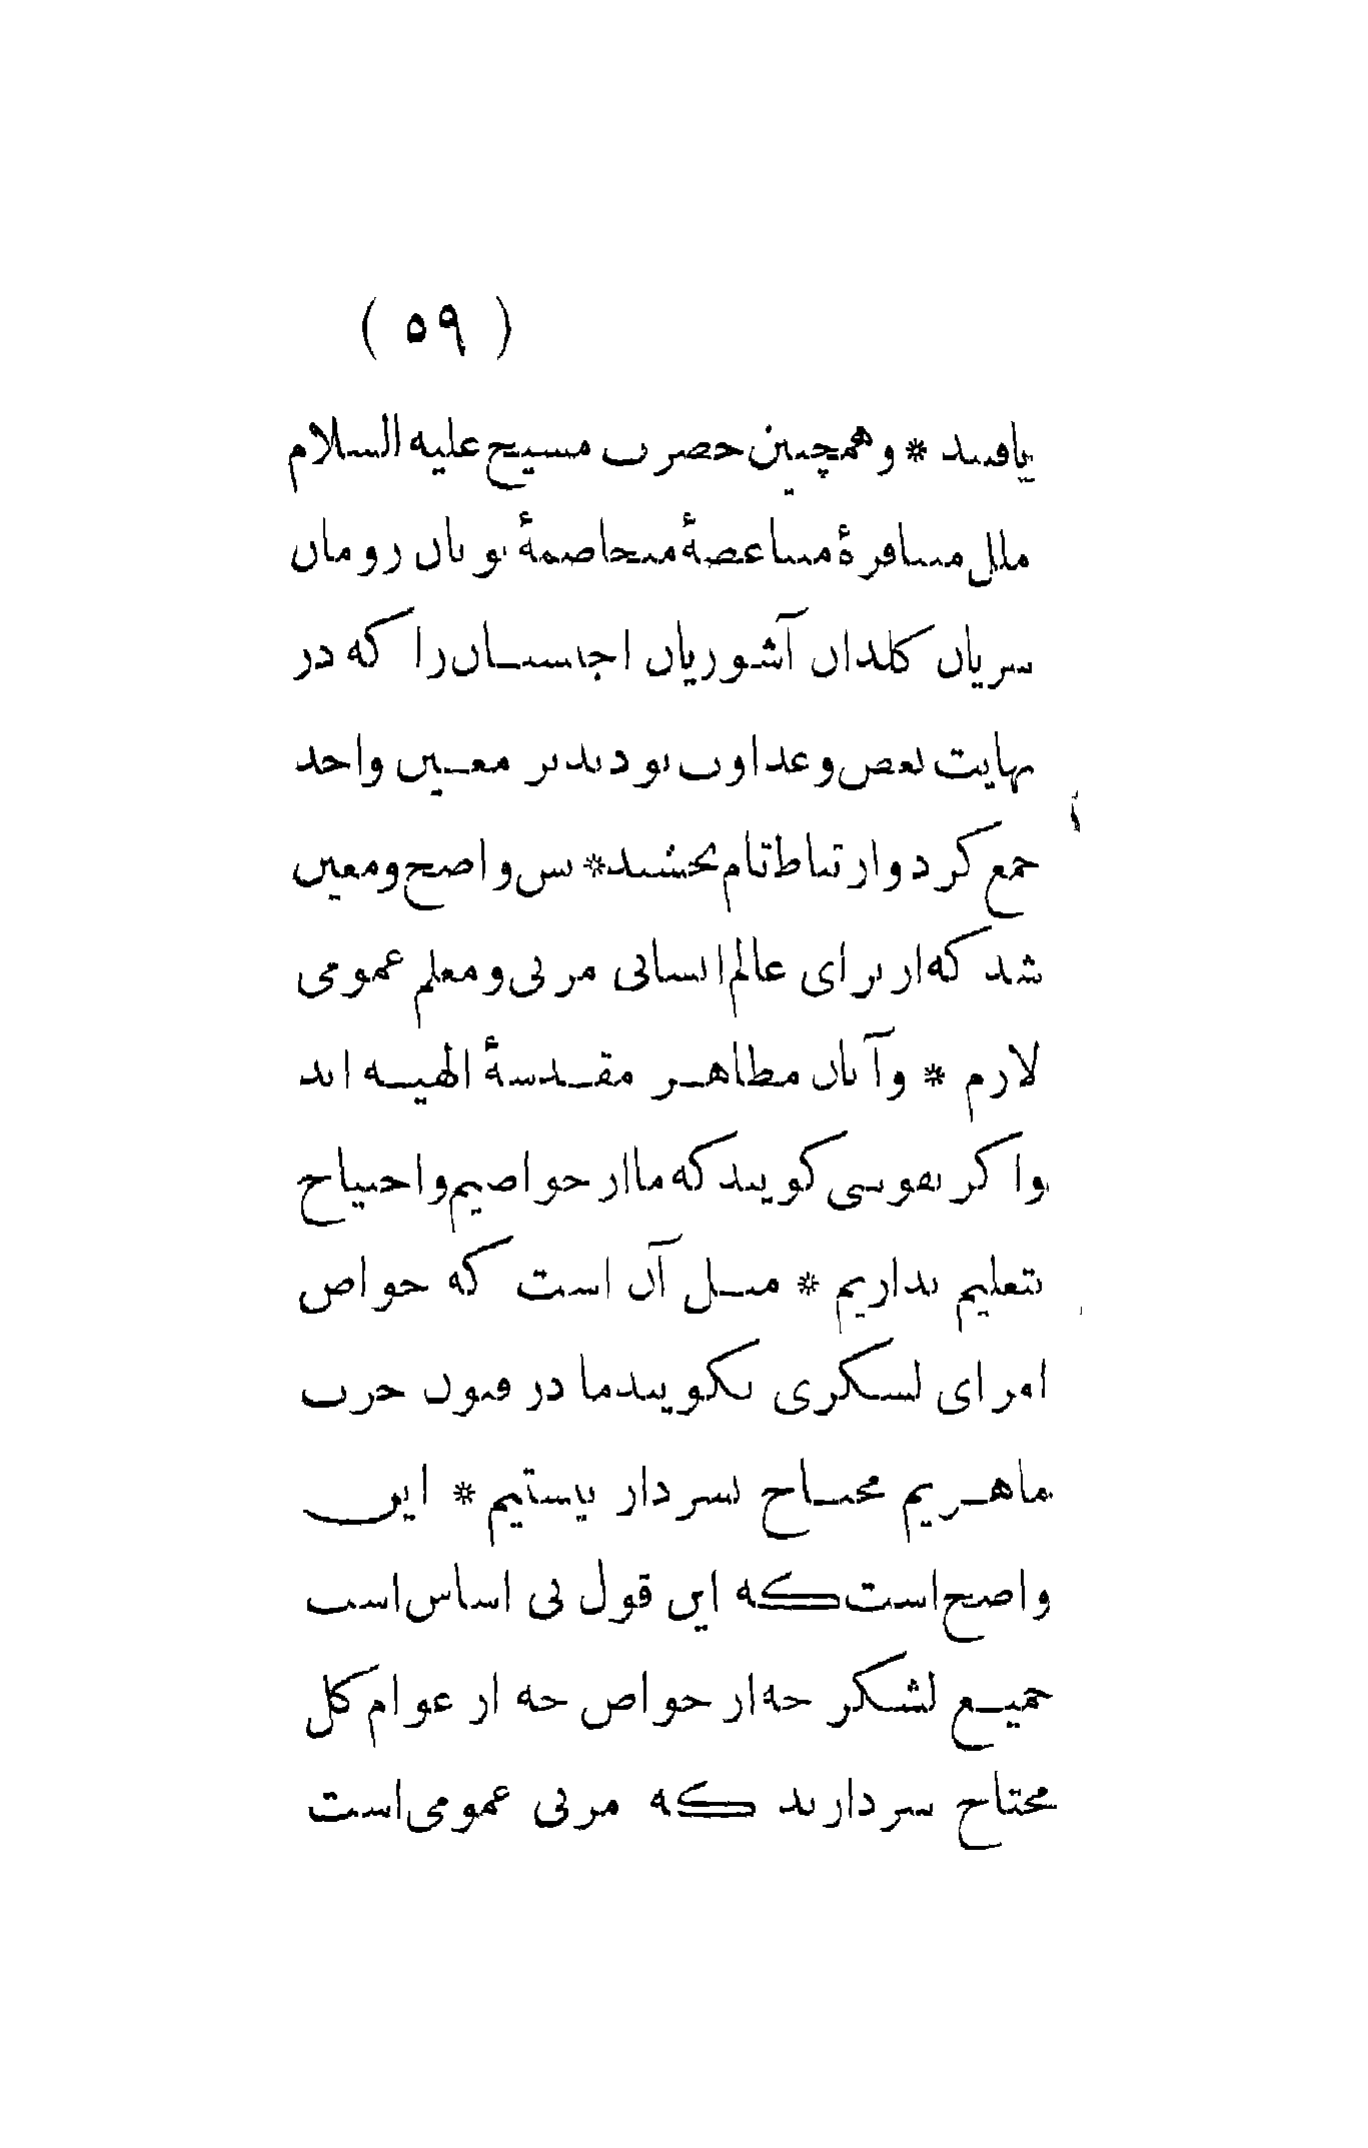 ( ٥٩ )
یافتند * و همچنین حضرت مسیح علیه السلام
ملل متنافرهٔ متباغضهٔ متخاصمهٔ یونان رومان
سریان کلدان آشوریان اجبسیان را که در
نهایت بغض و عداوت بودند بر معین واحد
جمع کرد و ارتباط تام بخشید * پس واضح و معین
شد که از برای عالم انسانی مربی و معلم عمومی
لازم * و آنان مظاهر مقدسهٔ الهیه اند
واکر نفوسی کویند که ما از خواصیم و احتیاج
بتعلیم نداریم * مثل آن است که خواص
امرای لشکری بکویند ما در فنون حرب
ماهریم محتاج بسردار نیستیم * این
واضح است که این قول بی اساس است
جمیع لشکر چه از خواص چه از عوام کل
محتاج سردارند که مربی عمومی است